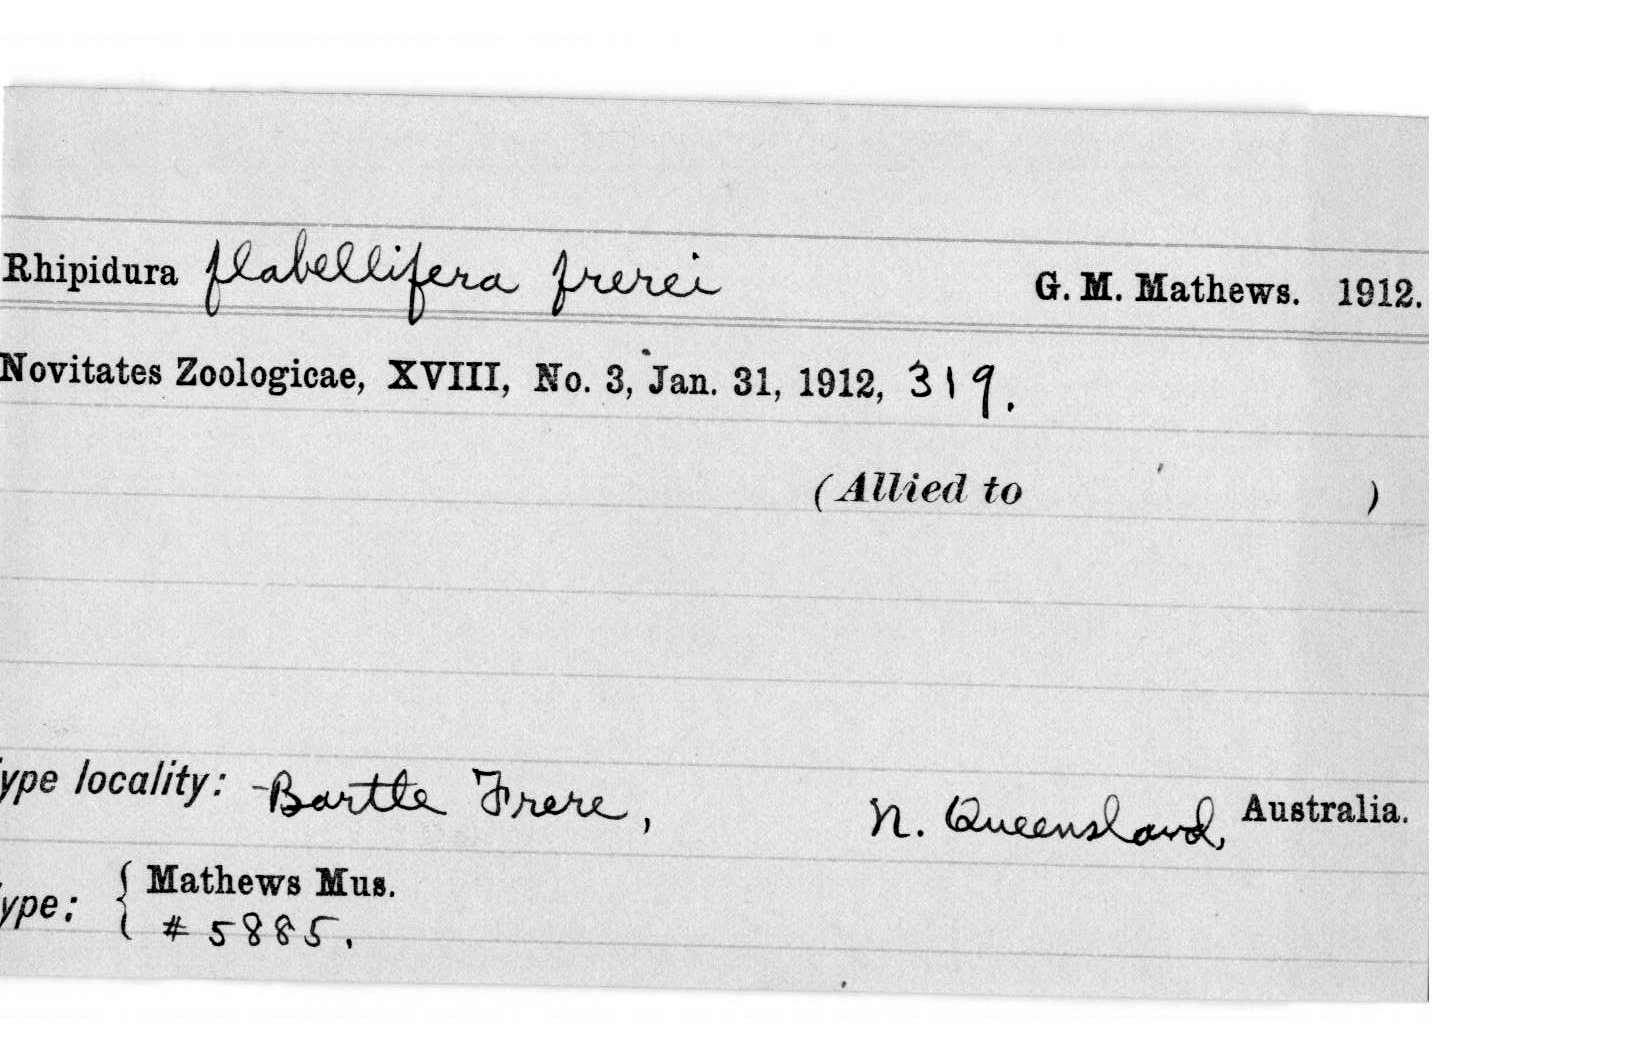 Rhipidura flabellifera frerei G. M. Mathews. 1912.
Novitates Zoologicae, XVIII, No. 3, Jan. 31, 1912, 319.
(Allied to )
ype locality: Bartle Frere, N. Queensland, Australia.
ype: { Mathews Mus.
# 5885.